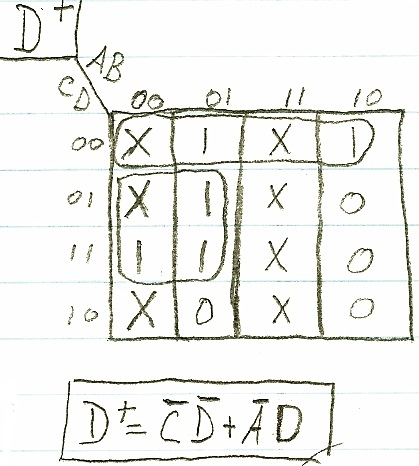 D⁺
AB
CD 00 01 11 10
00 X 1 X 1
01 X 1 X 0
11 1 1 X 0
10 X 0 X 0
D⁺= C̅ D̅ + A̅ D